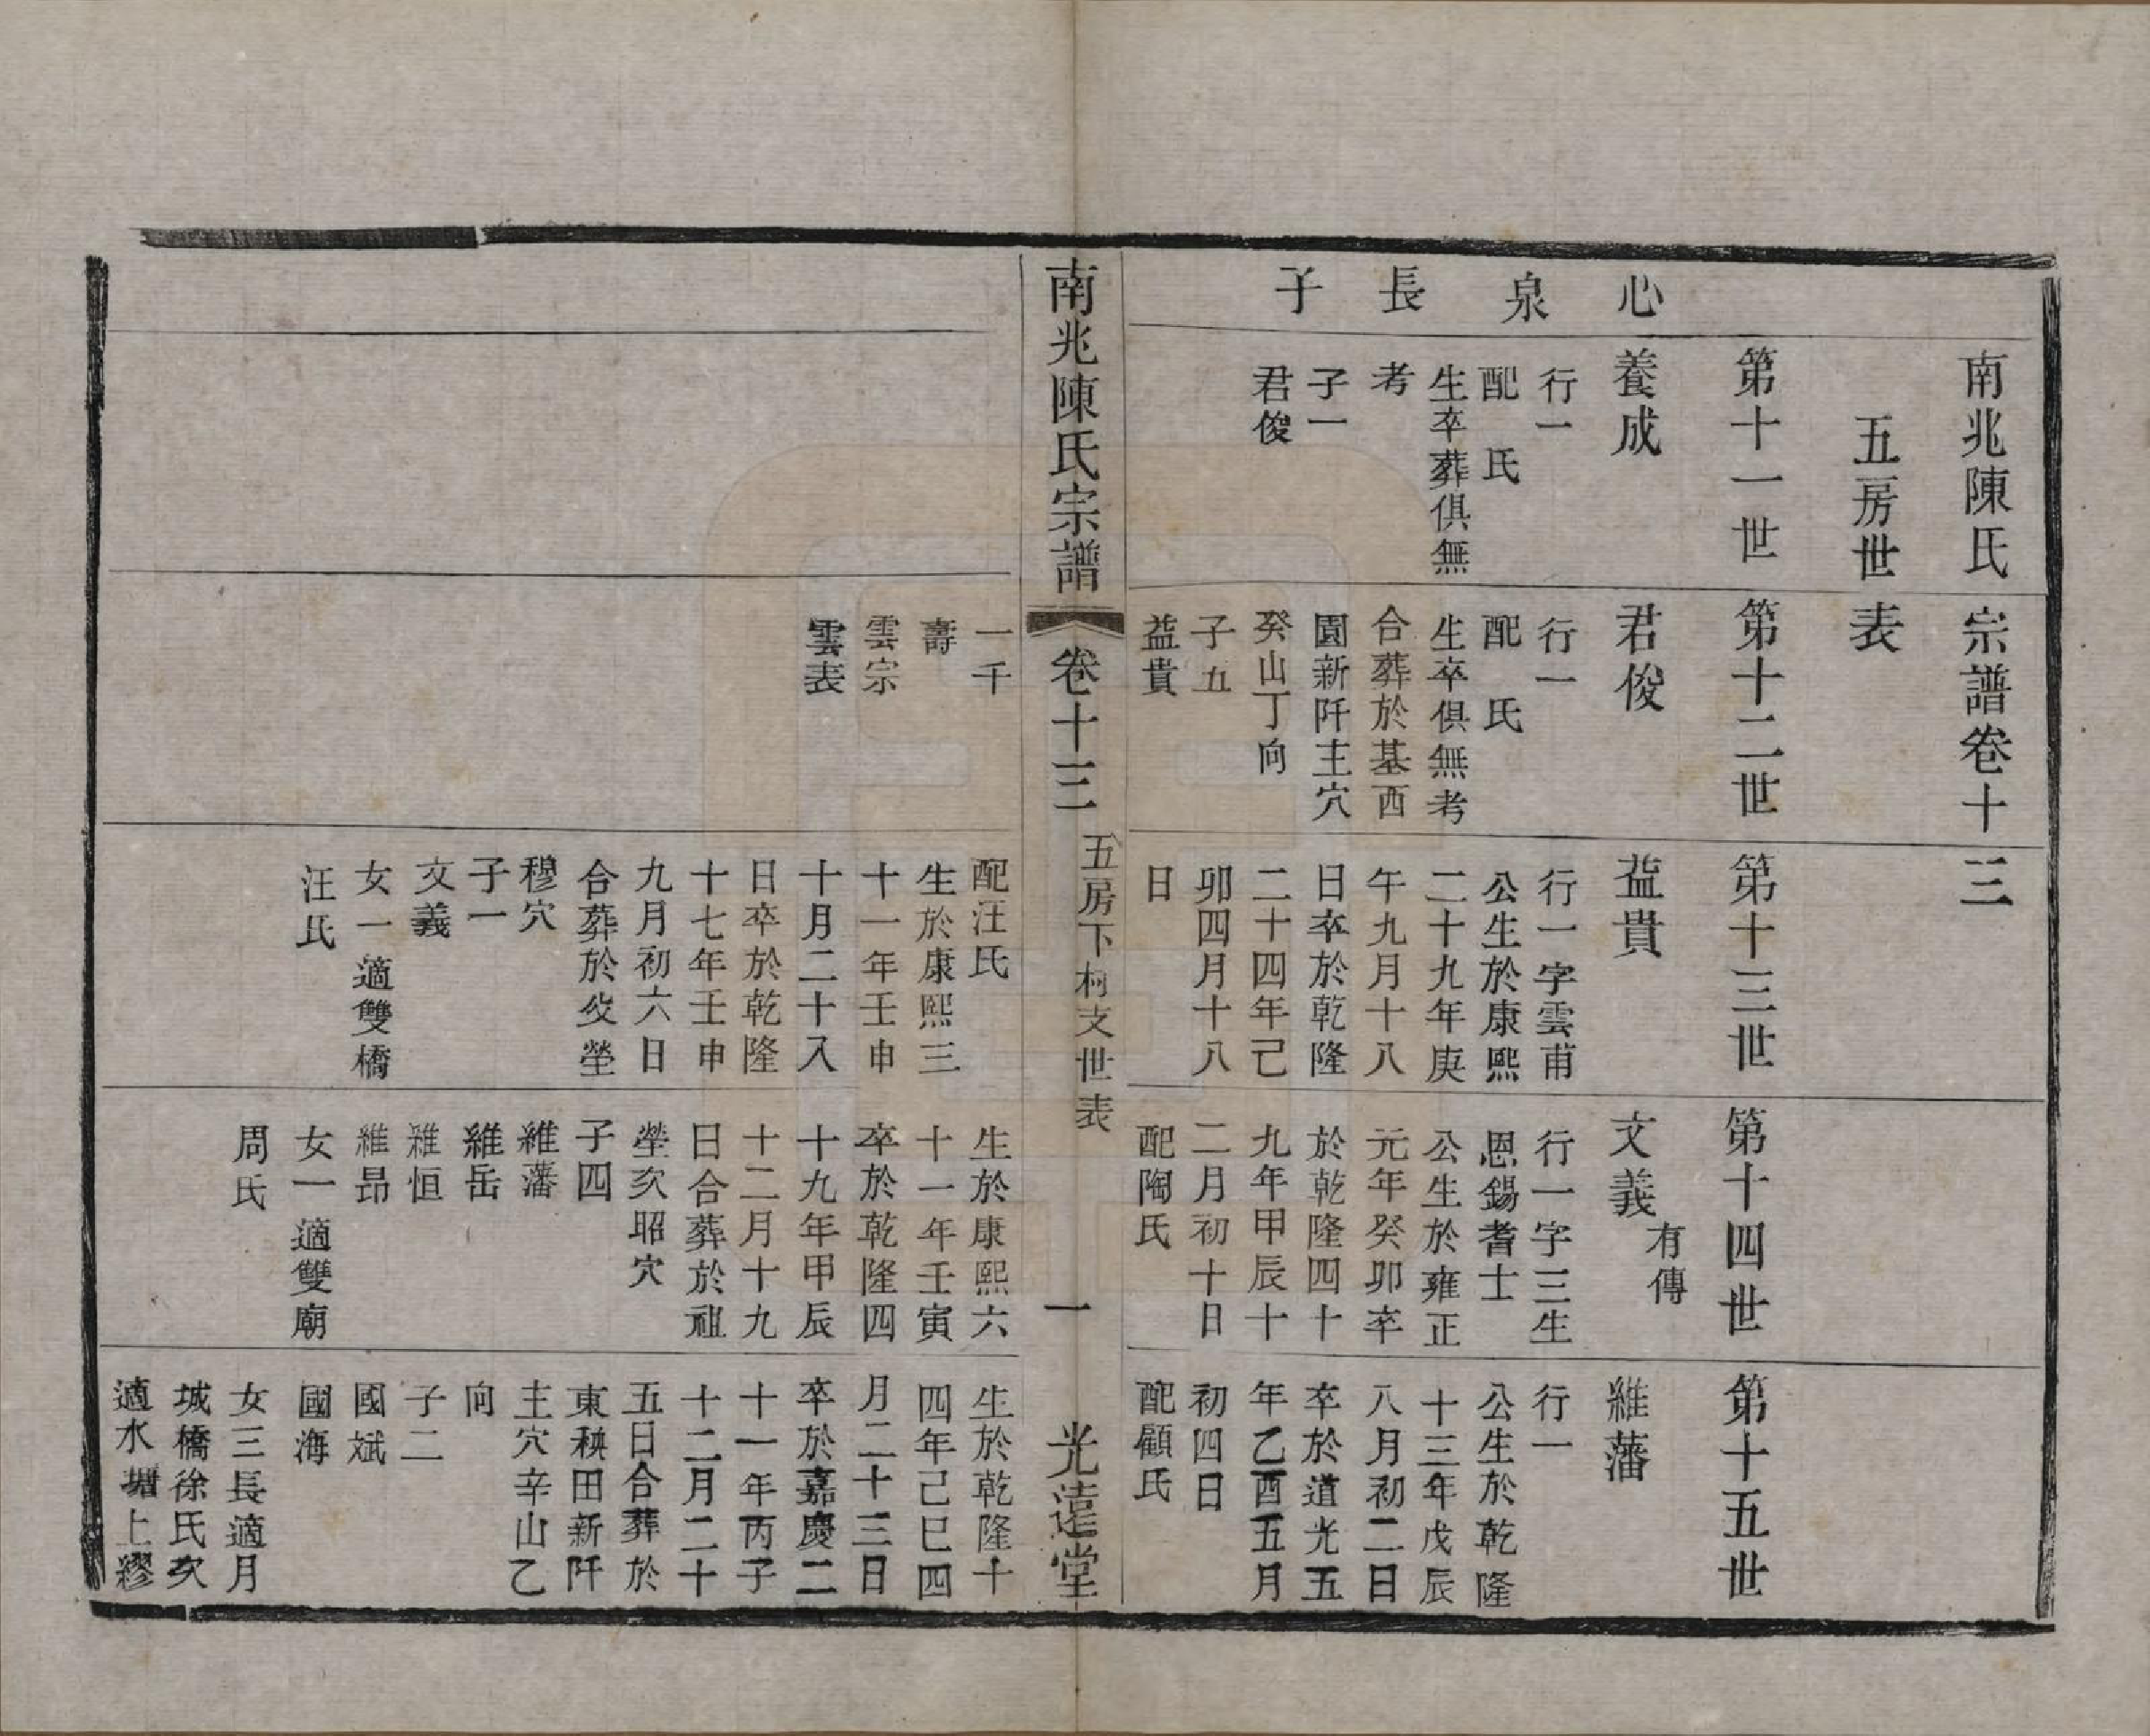 南兆陳氏宗譜卷十三
五房世表
第十一世
第十二世
第十三世
第十四世
第十五世
心泉長子
養成
行一
配　氏
生卒葬俱無
考
子一
君俊
君俊
行一
配　氏
生卒俱無考
合葬於基西
園新阡主穴
癸山丁向
子五
益貴
一千
壽
雲宗
雲表
益貴
行一字雲甫
公生於康熙
二十九年庚
午九月十八
日卒於乾隆
二十四年己
卯四月十八
日
配汪氏
生於康熙三
十一年壬申
十月二十入
日卒於乾隆
十七年壬申
九月初六日
合葬於父塋
穆穴
子一
文義
女一適雙橋
汪氏
文義 有傳
行一字三生
恩錫耆士
公生於雍正
元年癸卯卒
於乾隆四十
九年甲辰十
二月初十日
配陶氏
生於康熙六
十一年壬寅
卒於乾隆四
十九年甲辰
十二月十九
日合葬於祖
塋次昭穴
子四
維藩
維岳
維恒
維昂
女一適雙廟
周氏
維藩
行一
公生於乾隆
十三年戊辰
八月初二日
卒於道光五
年乙酉五月
初四日
配顧氏
生於乾隆十
四年己巳四
月二十三日
卒於嘉慶二
十一年丙子
十二月二十
五日合葬於
東秧田新阡
主穴辛山乙
向
子二
國斌
國海
女三長適月
城橋徐氏次
適水塘上繆
南兆陳氏宗譜
卷十三
五房下柯支世表
一
光遠堂